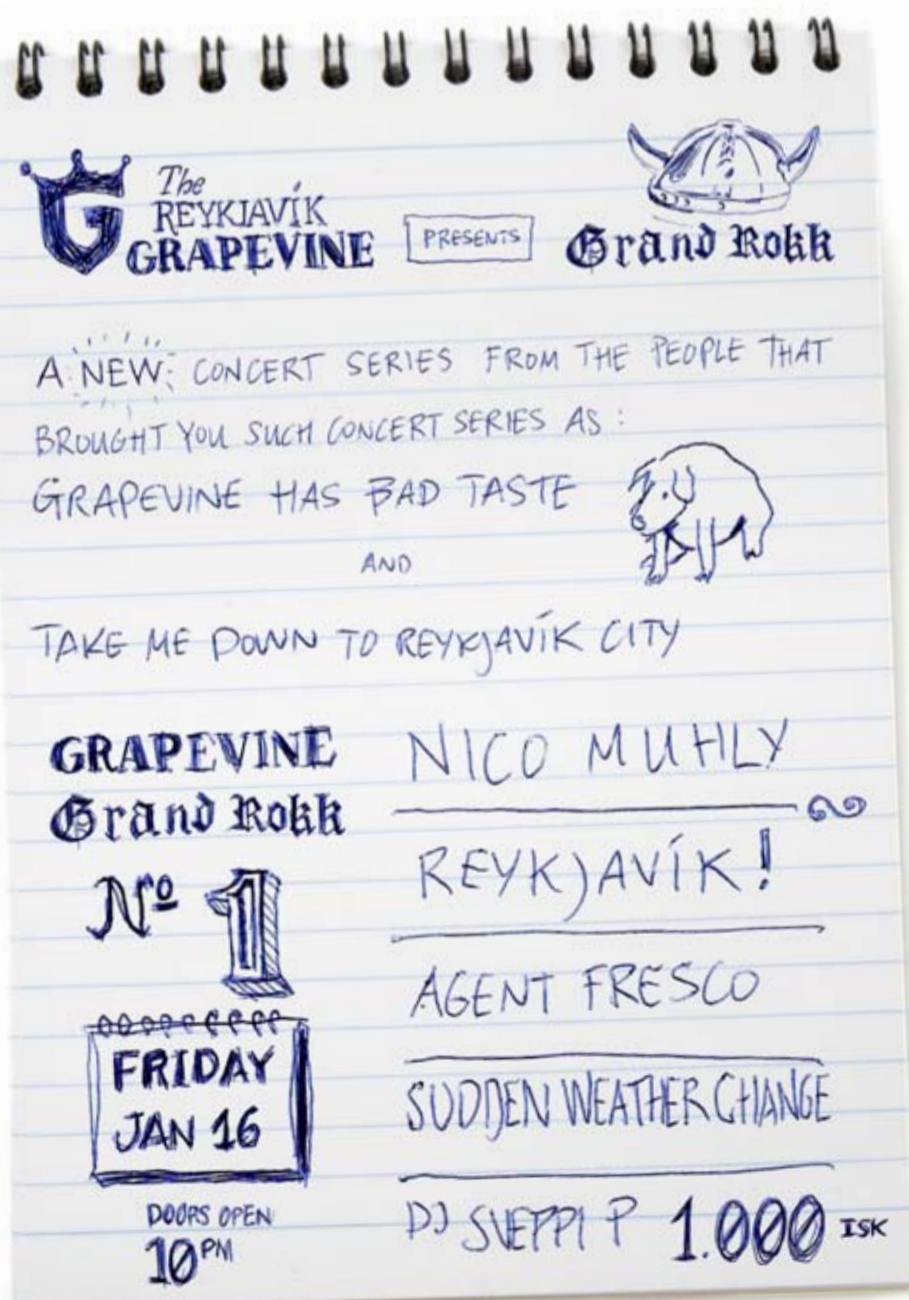 The
REYKJAVÍK
GRAPEVINE
PRESENTS
Grand Rokk
A NEW CONCERT SERIES FROM THE PEOPLE THAT
BROUGHT YOU SUCH CONCERT SERIES AS:
GRAPEVINE HAS BAD TASTE
AND
TAKE ME DOWN TO REYKJAVÍK CITY
GRAPEVINE
Grand Rokk
Nº 1
FRIDAY
JAN 16
DOORS OPEN
10 PM
NICO MUHLY
REYKJAVÍK!
AGENT FRESCO
SUDDEN WEATHER CHANGE
DJ SVEPPI P 1.000 ISK